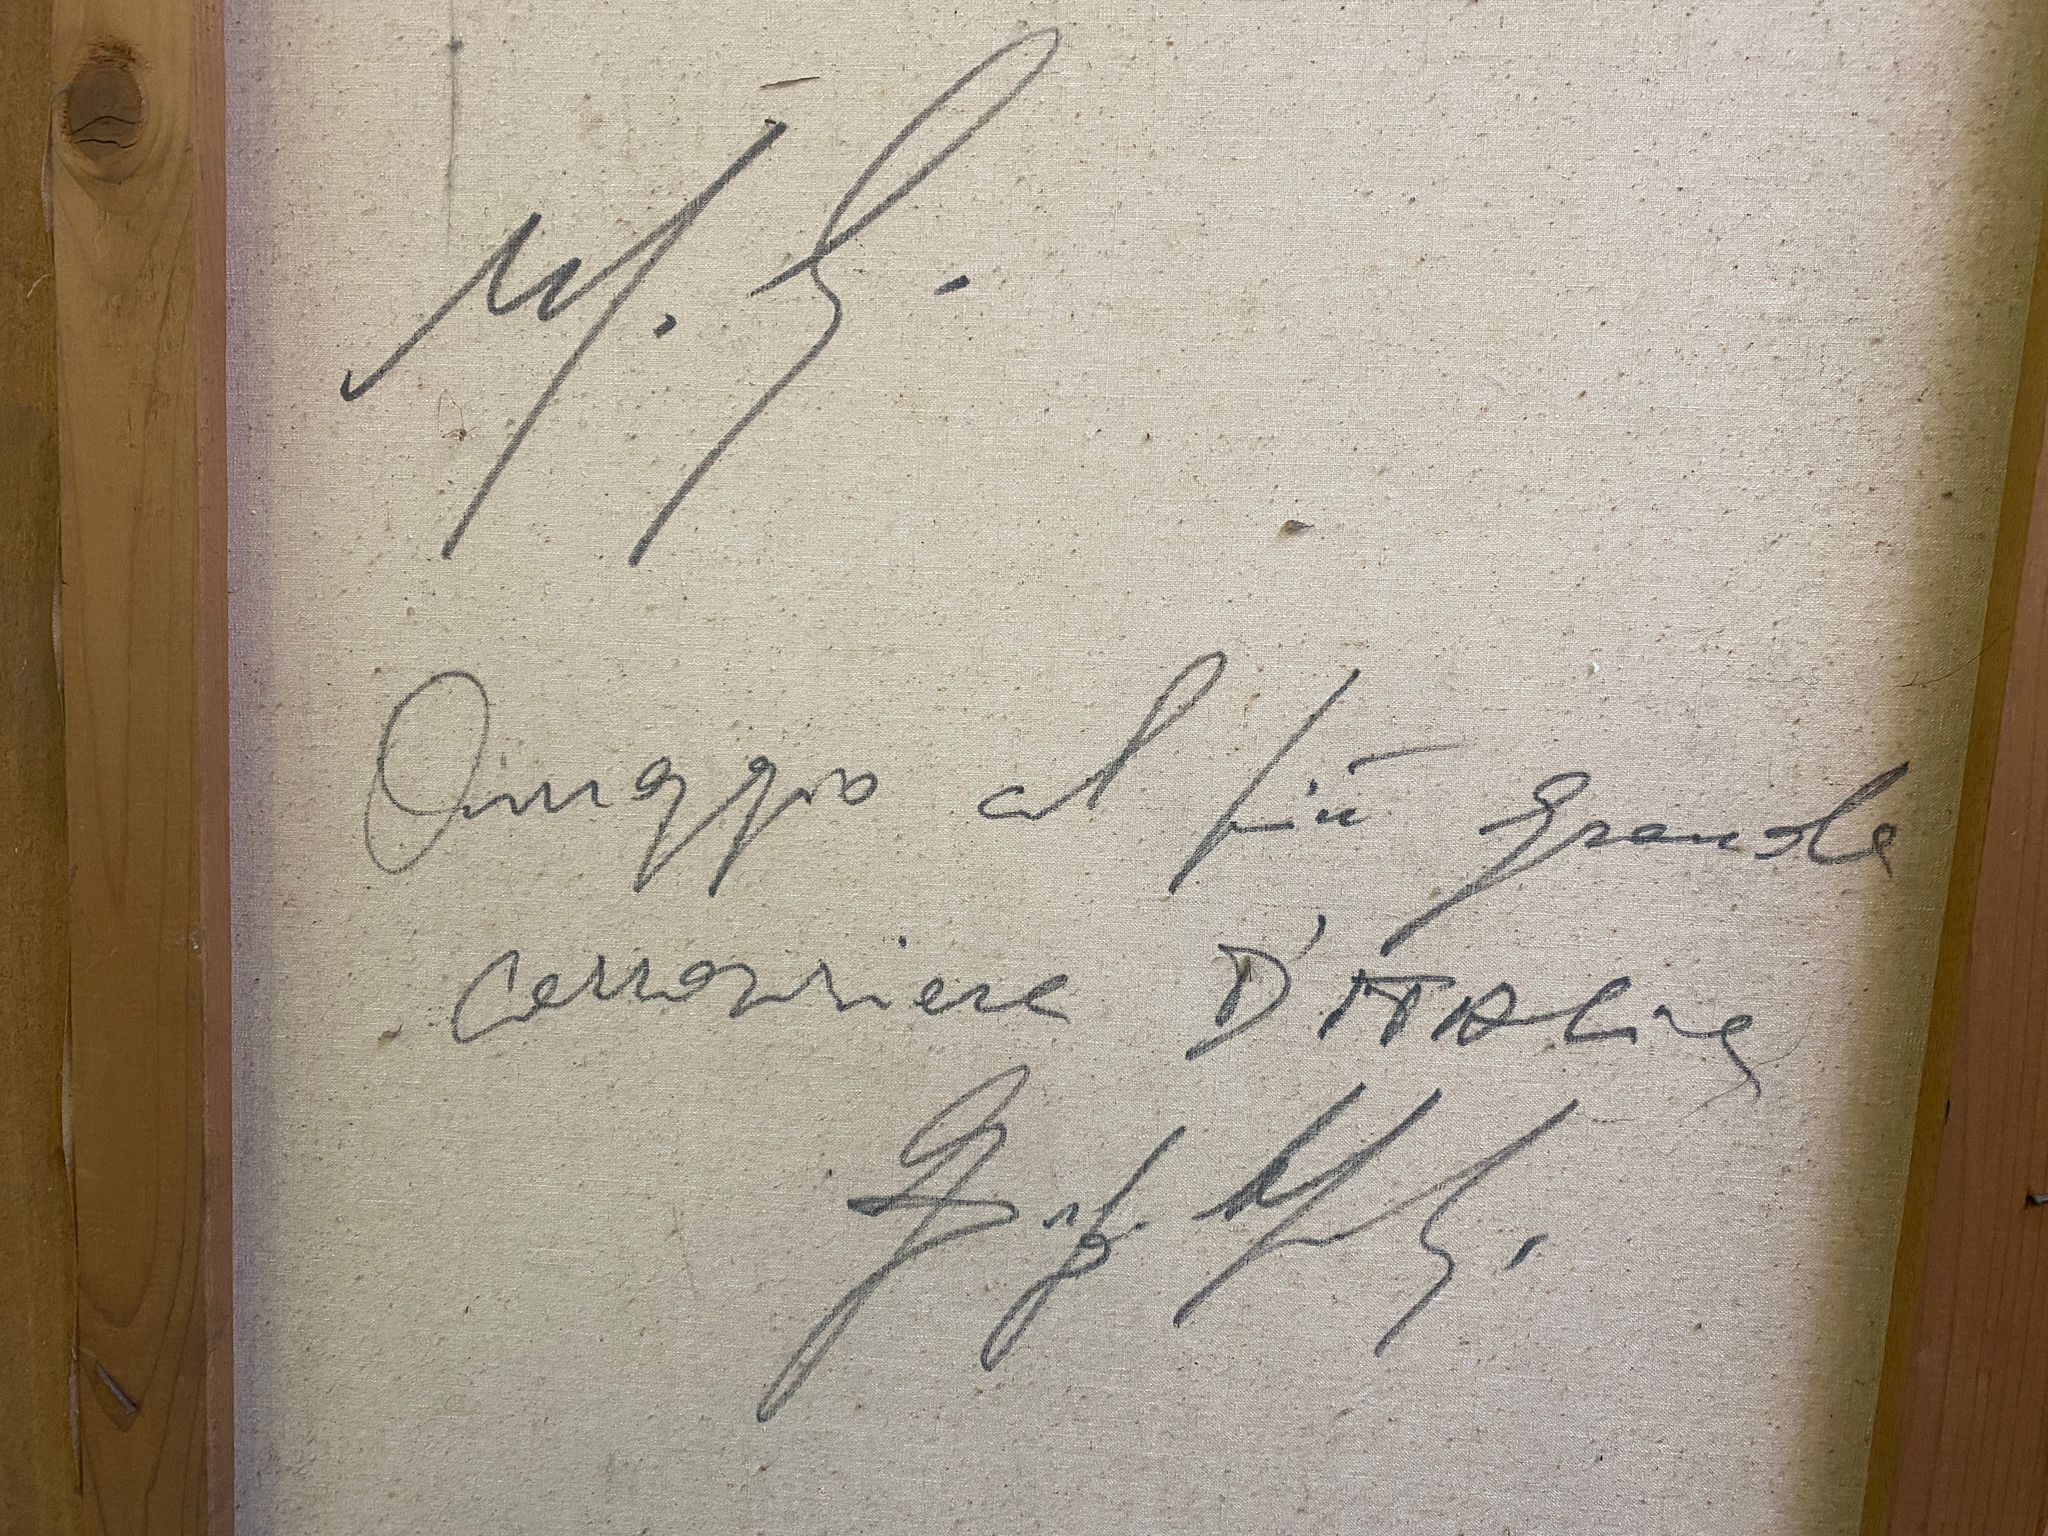 M. G.
Omaggio al più grande
carrozziere D'ITALia